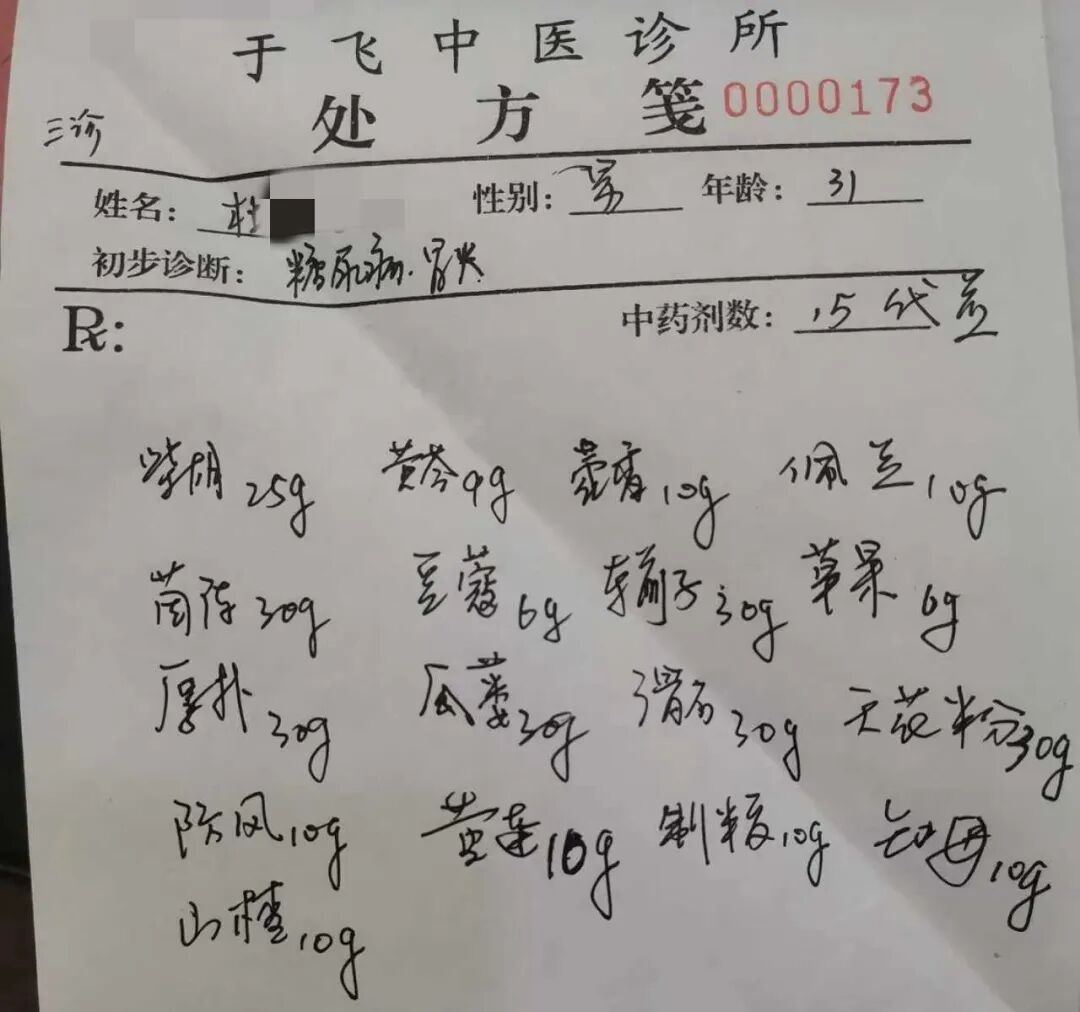 于飞中医诊所
处方笺 0000173
三诊
姓名: 杜 性别: 男 年龄: 31
初步诊断: 糖尿病.胃炎
R: 中药剂数: 15 代煎
柴胡25g 黄芩9g 藿香10g 佩兰10g
茵陈30g 豆蔻6g 车前子30g 草果6g
厚朴30g 瓜蒌30g 滑石30g 天花粉30g
防风10g 黄连10g 制半夏10g 知母10g
山楂10g